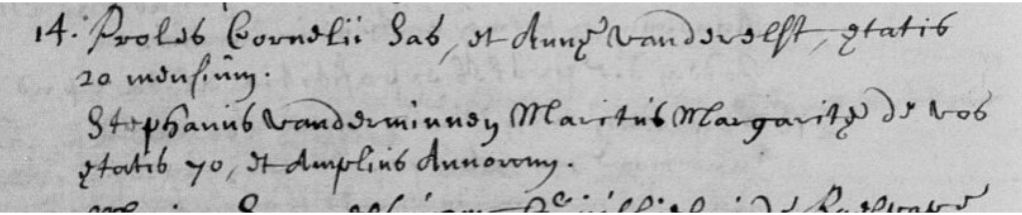 14. Proles Cornelii Sas, et Annę vanderelst, ętatis
20 mensium.
Stephanus vanderminnen Maritus Margaritę de vos
ętatis 70, et Amplius Annorum.
de